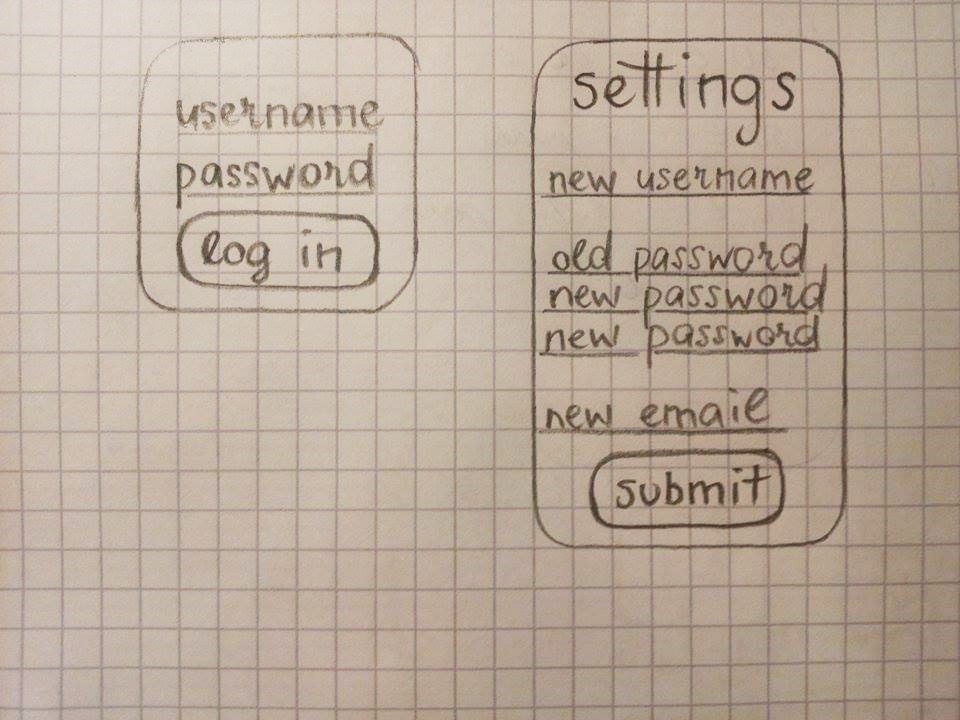 username
password
log in
settings
new username
old password
new password
new password
new email
submit